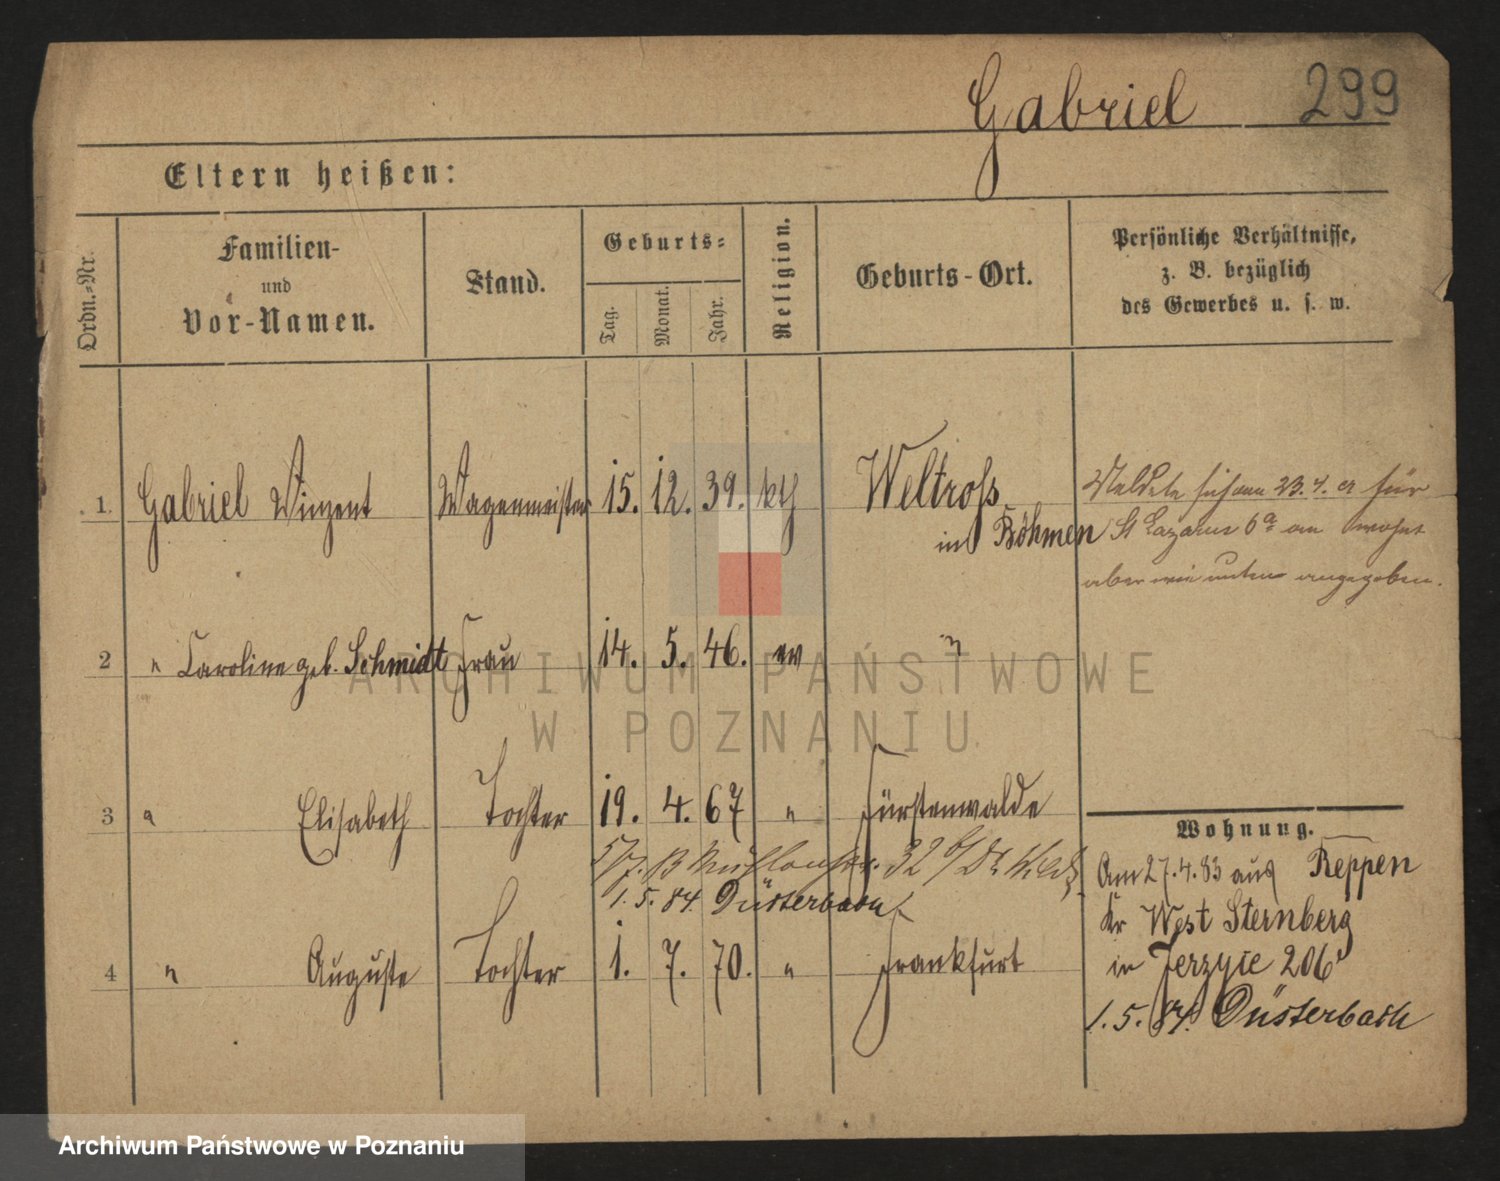 Gabriel 299
Eltern heißen:
Ordn.-Nr.
Familien-
und
Vor-Namen.
Stand.
Geburts-
Tag.
Monat.
Jahr.
Religion.
Geburts-Ort.
Persönliche Verhältnisse,
z. B. bezüglich
des Gewerbes u. s. w.
1. Gabriel Vinzent Wagenmeister 15. 12. 39. kth Weltross
in Böhmen
Meldete sich am 23.4. cr für
St Lazarus 6a an wohnt
aber wie unten angegeben.
2 " Caroline geb. Schmidt Frau 14. 5. 46. ev "
3 " Elisabeth Tochter 19. 4. 67 " Fürstenwalde
32
1. 5. 84. Düsterbach
4 " Auguste Tochter 1. 7. 70. " Frankfurt
Wohnung.
Am 27.4.83 aus Reppen
Kr West Sternberg
in Jerzyce 206
1. 5. 84. Düsterbach
ARCHIWUM PAŃSTWOWE
W POZNANIU
Archiwum Państwowe w Poznaniu